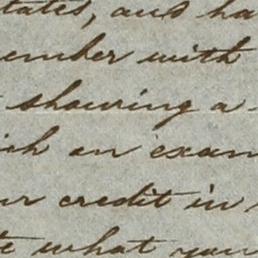 tates, and ha
ember with
showing a
ich an exam
ur credit in
te what your